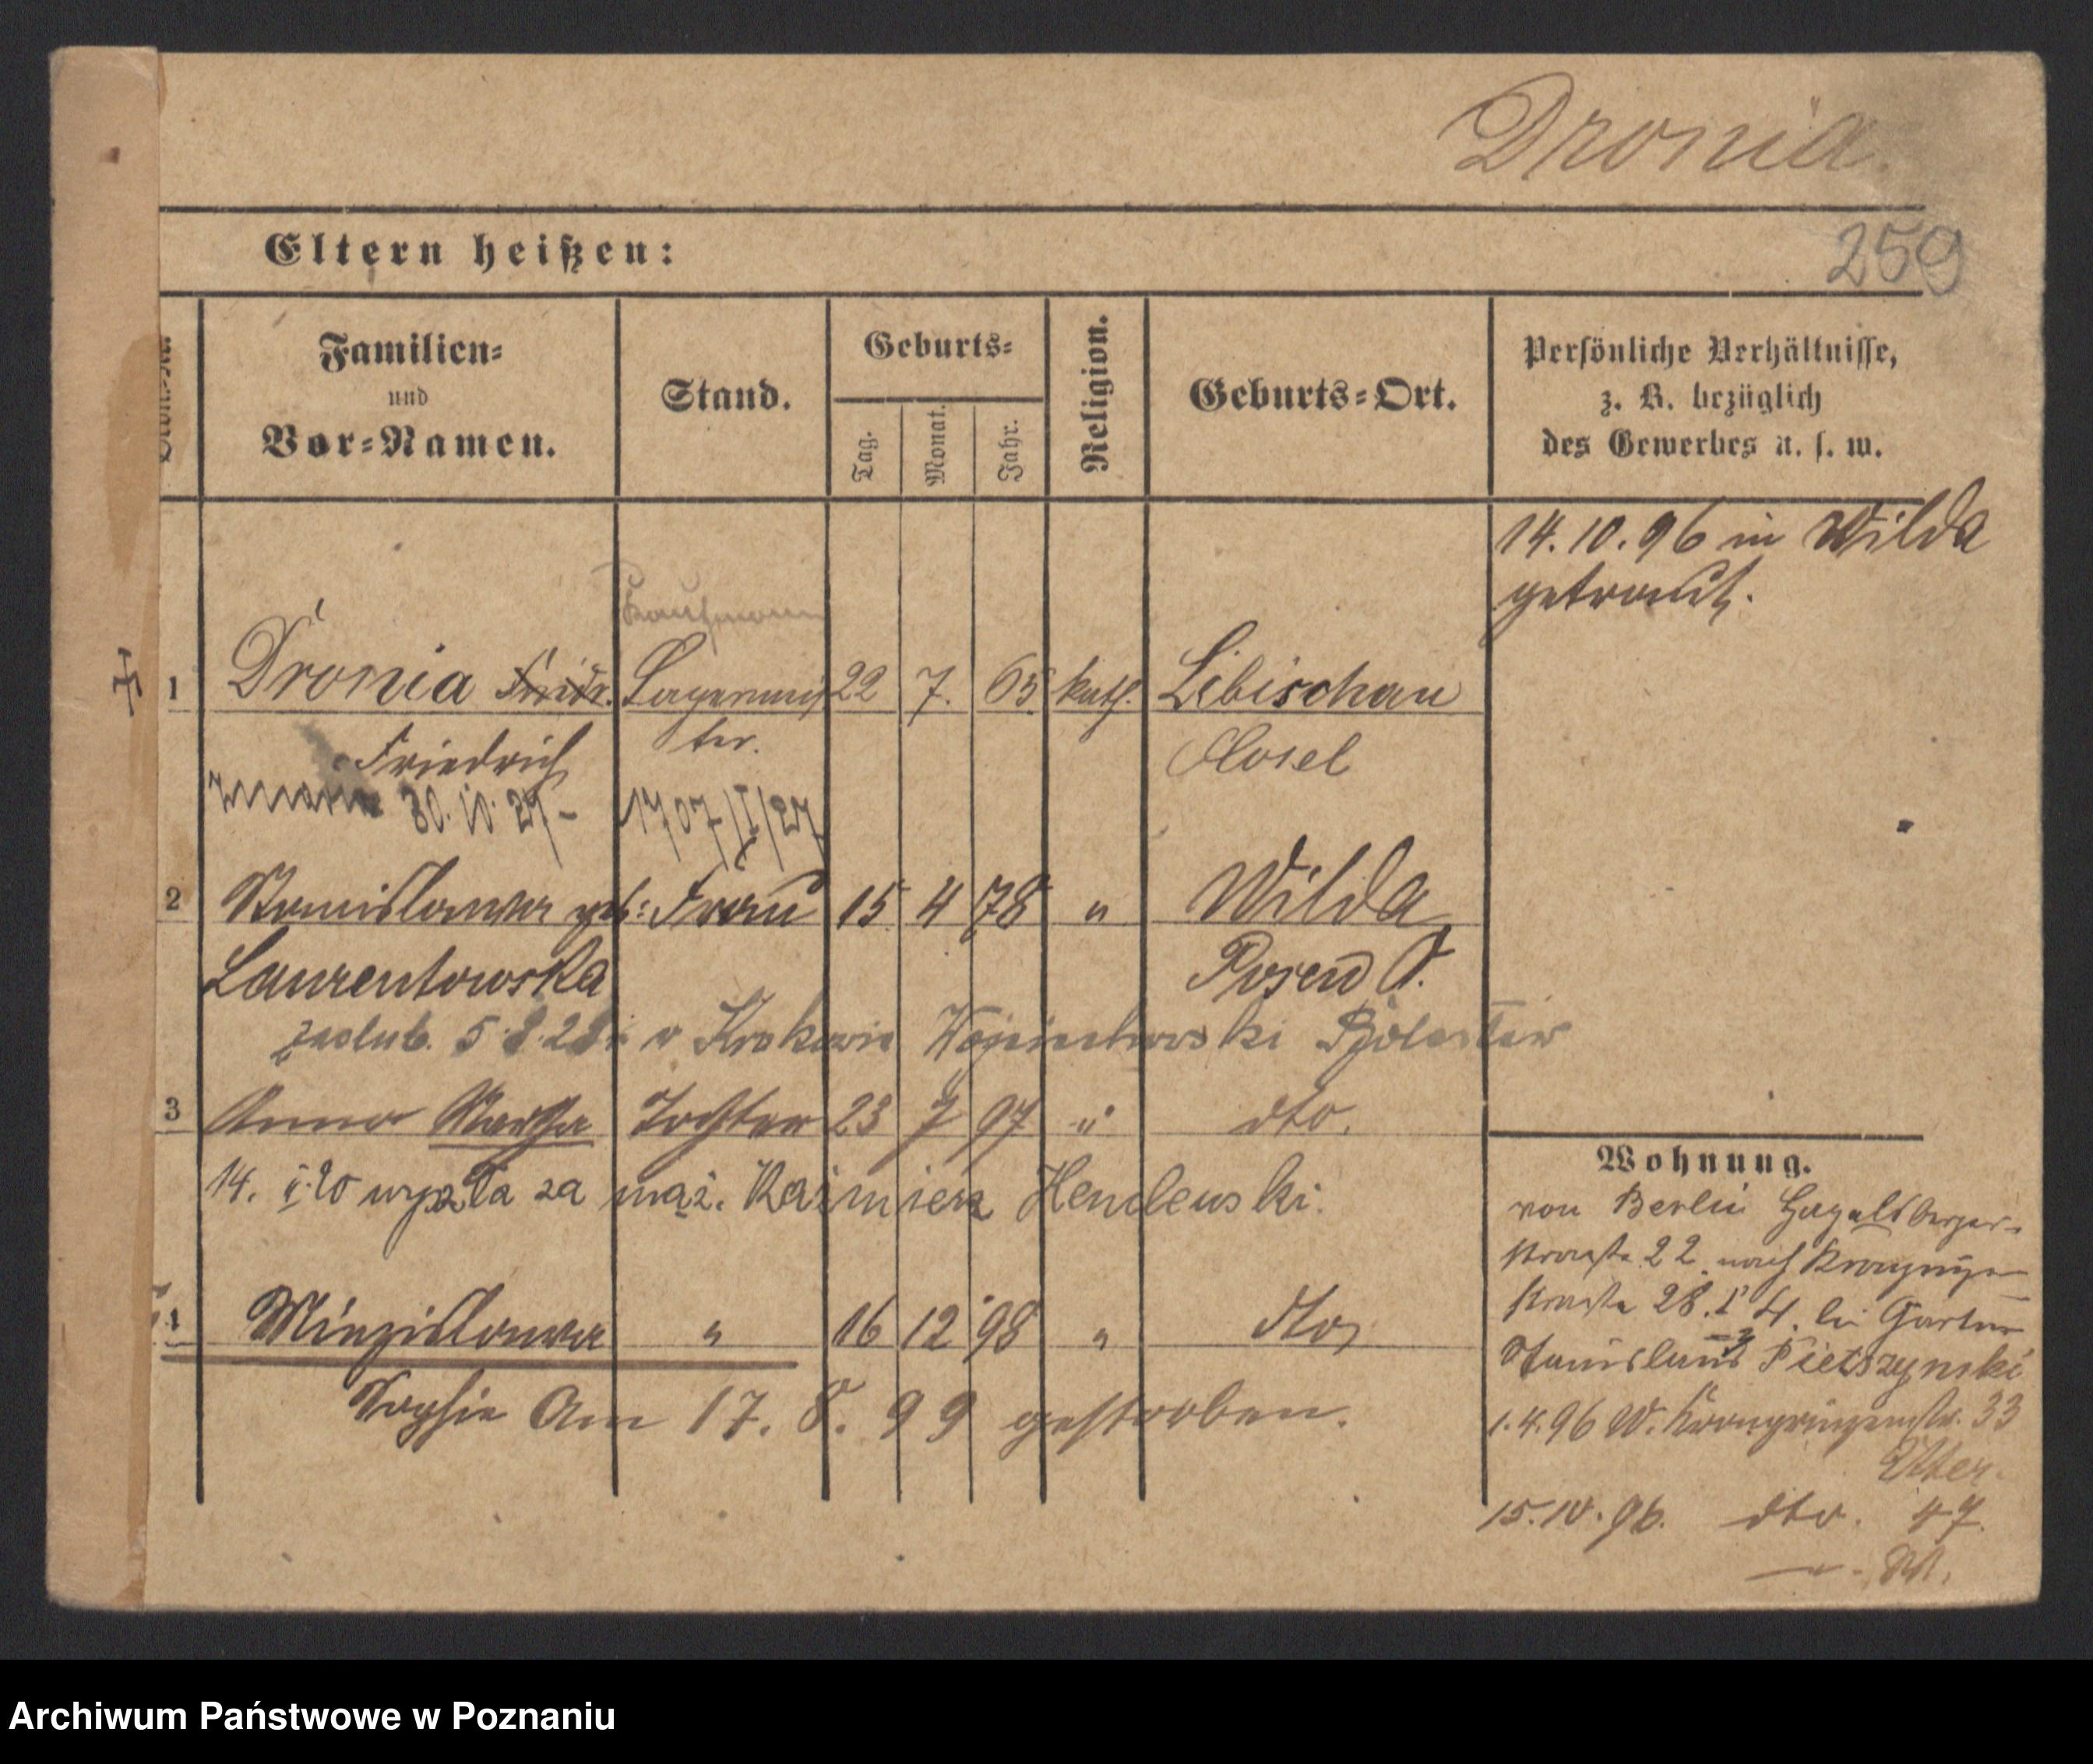 Dronia.
259
Eltern heißen:
Familien-
und
Vor-Namen.
Stand.
Geburts-
Tag.
Monat.
Jahr.
Religion.
Geburts-Ort.
Persönliche Verhältnisse,
z. B. bezüglich
des Gewerbes u. s. w.
14. 10. 96 in Wilda
getraut.
Kaufmann
1 Dronia Friedr. Lagermeis 22 7. 65 kath. Libischau
Friedrich ter. Cosel
zmarł 30. 10. 27 - 1707/I/27
2 Stanislawa geb: Frau 15 4 78 " Wilda
Laurentowska Posen O.
zaślub. 5.8.28 w Krakowie Wojciechowski Bolesław
3 Anna Martha Tochter 23 7 97 " dto.
14. I. 20 wyszła za mąż. Kazimierz Hendewski.
4 Miezislawa " 16 12 98 " dto
Sophie Am 17. 8. 99 gestorben.
Wohnung.
von Berlin Hagelsberger-
strasse 22 nach Kronprinzen
strasse 28. I 4. bei Gärtner
Stanislaus Pietszynski
1.4.96 W. Kronprinzenstr. 33
15.10.96. dto. 47.
Archiwum Państwowe w Poznaniu